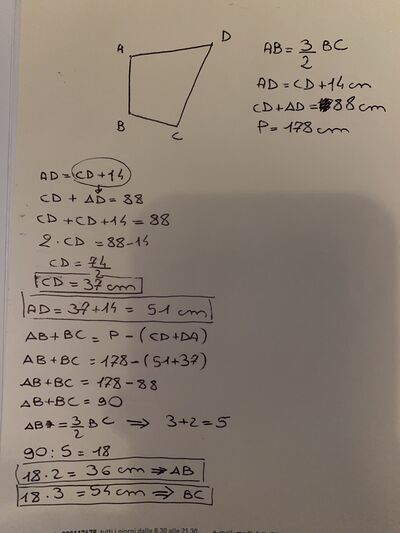 A
D
B
C
AB = 3/2 BC
AD = CD + 14 cm
CD + AD = 88 cm
P = 178 cm
AD = CD + 14
CD + AD = 88
CD + CD + 14 = 88
2 · CD = 88 - 14
CD = 74/2
CD = 37 cm
AD = 37 + 14 = 51 cm
AB + BC = P - (CD + DA)
AB + BC = 178 - (51 + 37)
AB + BC = 178 - 88
AB + BC = 90
AB = 3/2 BC ⇒ 3 + 2 = 5
90 : 5 = 18
18 · 2 = 36 cm ⇒ AB
18 · 3 = 54 cm ⇒ BC
tutti i giorni dalle 8.30 alle 21.30